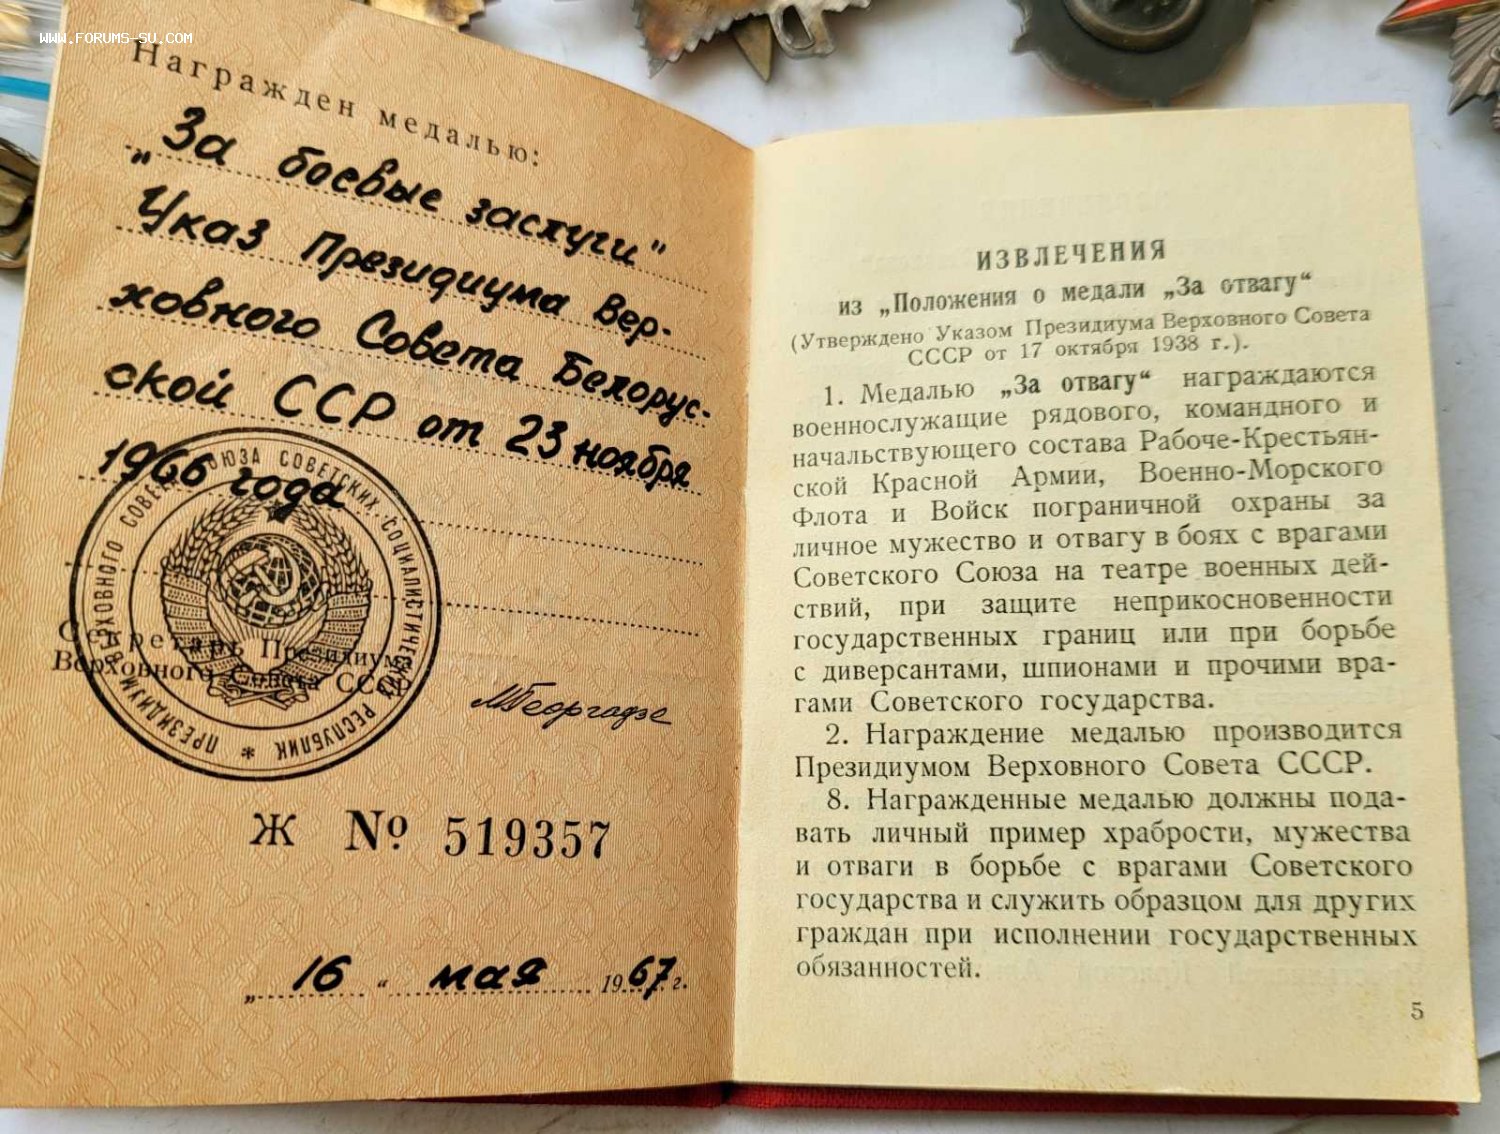 WWW.FORUMS-SU.COM
Награжден медалью:
„За боевые заслуги"
Указ Президиума Вер-
ховного Совета Белорус-
ской ССР от 23 ноября
1966 года
ПРЕЗИДИУМ ВЕРХОВНОГО СОВЕТА СОЮЗА СОВЕТСКИХ СОЦИАЛИСТИЧЕСКИХ РЕСПУБЛИК *
Секретарь Президиума
Верховного Совета СССР
МГеоргадзе
Ж № 519357
„16" мая 1967 г.
ИЗВЛЕЧЕНИЯ
из „Положения о медали „За отвагу“
(Утверждено Указом Президиума Верховного Совета
СССР от 17 октября 1938 г.).
1. Медалью „За отвагу“ награждаются
военнослужащие рядового, командного и
начальствующего состава Рабоче-Крестьян-
ской Красной Армии, Военно-Морского
Флота и Войск пограничной охраны за
личное мужество и отвагу в боях с врагами
Советского Союза на театре военных дей-
ствий, при защите неприкосновенности
государственных границ или при борьбе
с диверсантами, шпионами и прочими вра-
гами Советского государства.
2. Награждение медалью производится
Президиумом Верховного Совета СССР.
8. Награжденные медалью должны пода-
вать личный пример храбрости, мужества
и отваги в борьбе с врагами Советского
государства и служить образцом для других
граждан при исполнении государственных
обязанностей.
5